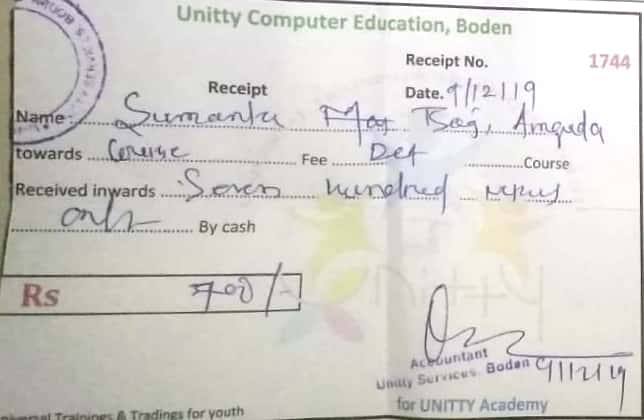 Unitty Computer Education, Boden
Receipt No. 1744
Receipt
Date. 9/12/19
Name : Sumanta Bag, Amguda
towards Course Fee Course
Received inwards Seven hundred
only By cash
Rs 700/-
Accountant
Unitty Services, Boden 9/12/19
for UNITTY Academy
Trainings & Tradings for youth